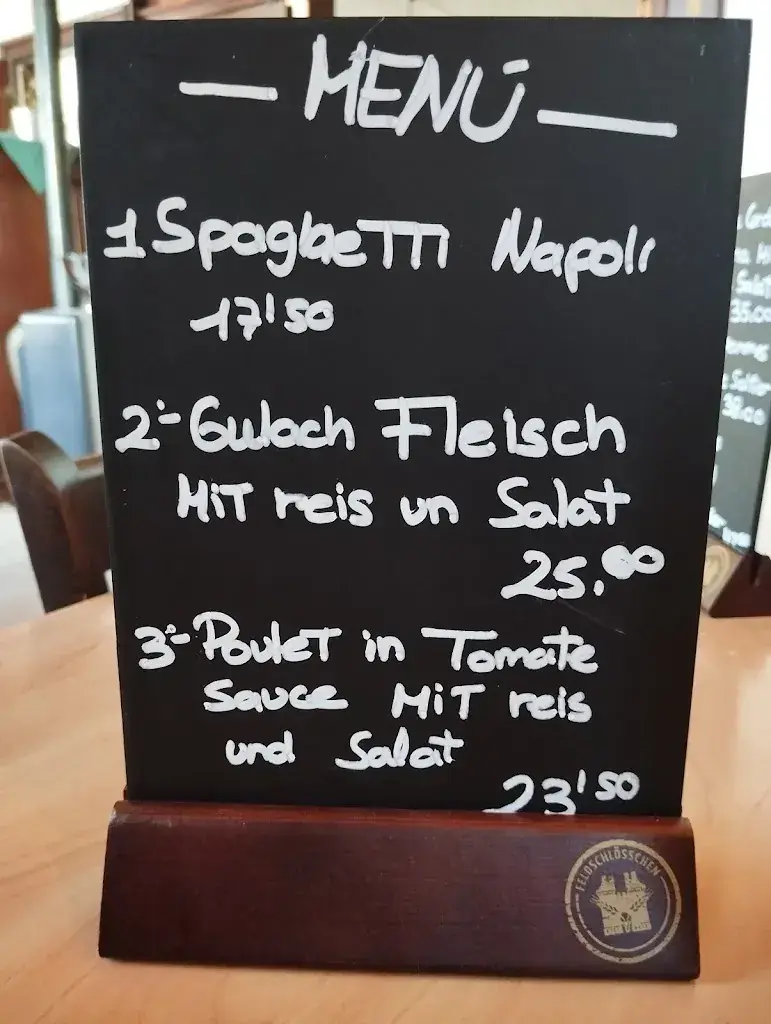 — MENÚ —
1 Spaghetti Napoli
17'50
2:- Gulach Fleisch
Mit reis un Salat
25.00
3:- Poulet in Tomate
Sauce Mit reis
und Salat
23'50
FELDSCHLÖSSCHEN
35.00
38.00